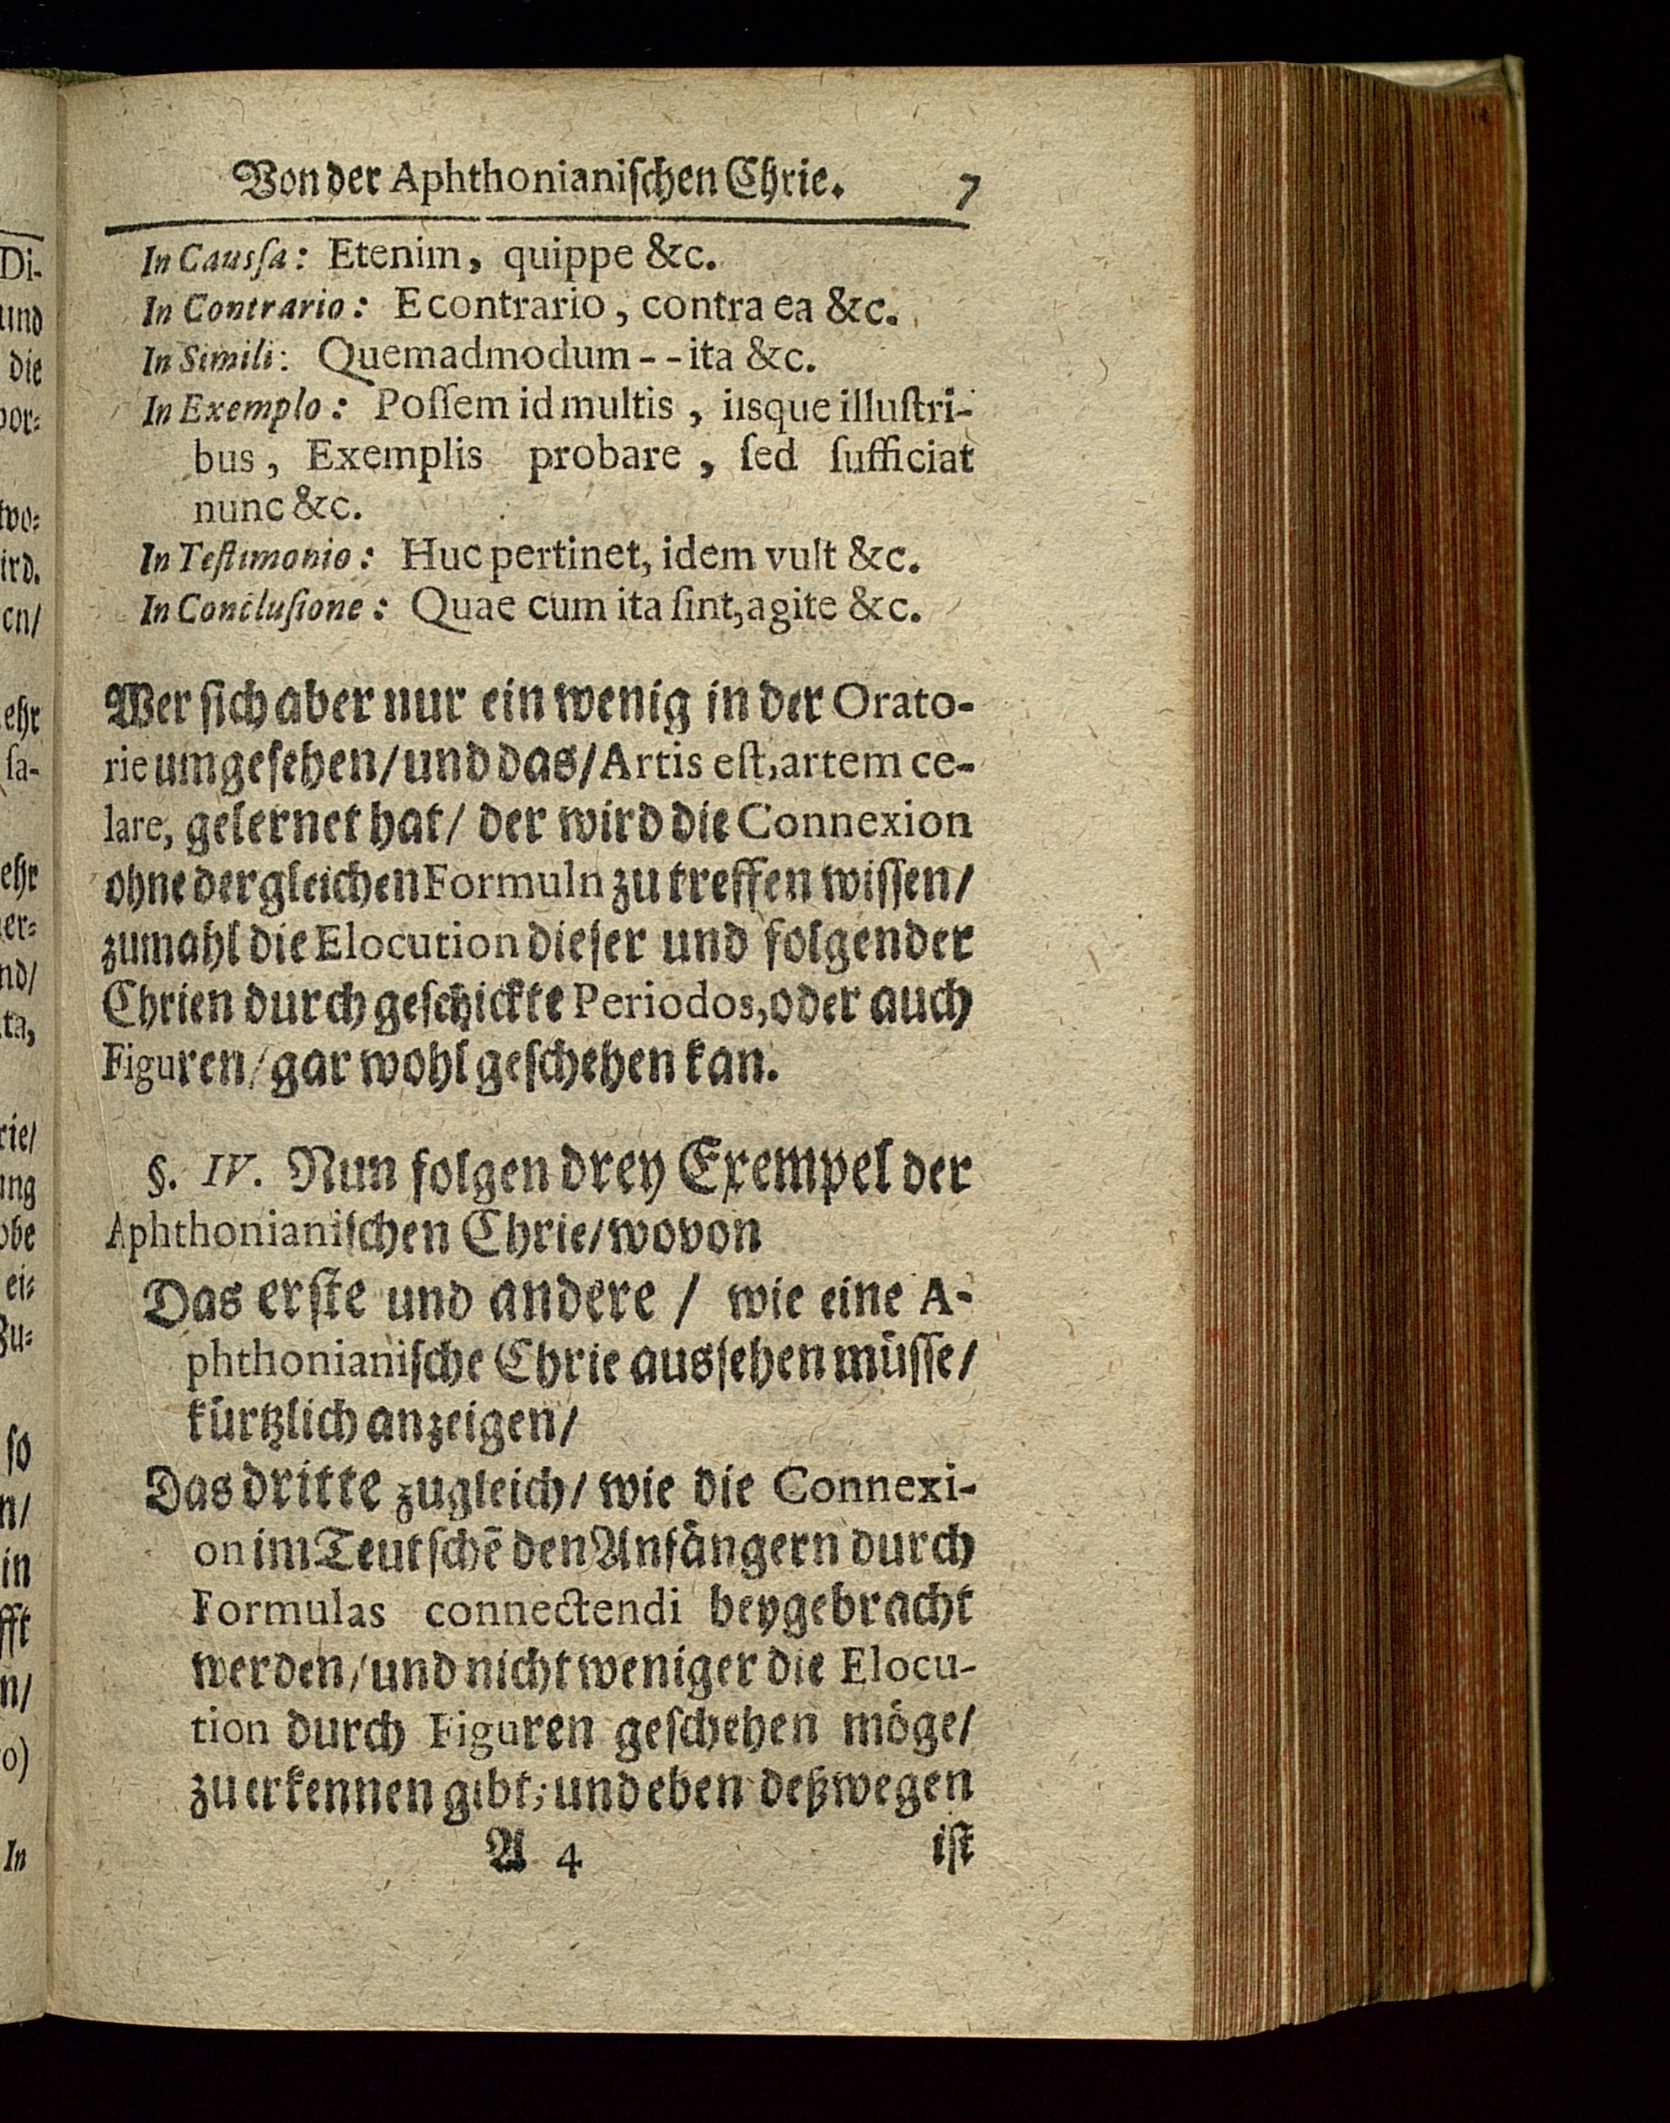 Von der Aphthonianiſchen Chrie. 7
In Cauſſa: Etenim, quippe &c.
In Contrario: E contrario, contra ea &c.
In Simili: Quemadmodum - - ita &c.
In Exemplo: Poſſem id multis, iisque illuſtri-
bus, Exemplis probare, ſed ſufficiat
nunc &c.
In Teſtimonio: Huc pertinet, idem vult &c.
In Concluſione: Quae cum ita ſint, agite &c.
Wer ſich aber nur ein wenig in der Orato-
rie umgeſehen/ und das/ Artis eſt, artem ce-
lare, gelernet hat/ der wird die Connexion
ohne dergleichen Formuln zu treffen wiſſen/
zumahl die Elocution dieſer und folgender
Chrien durch geſchickte Periodos, oder auch
Figuren/ gar wohl geſchehen kan.
§. IV. Nun folgen drey Exempel der
Aphthonianiſchen Chrie/ wovon
Das erſte und andere / wie eine A-
phthonianiſche Chrie ausſehen müſſe/
kürtzlich anzeigen/
Das dritte zugleich/ wie die Connexi-
on im Teutſchẽ den Anfängern durch
Formulas connectendi beygebracht
werden/ und nicht weniger die Elocu-
tion durch Figuren geſchehen möge/
zu erkennen gibt; und eben deßwegen
A 4 iſt